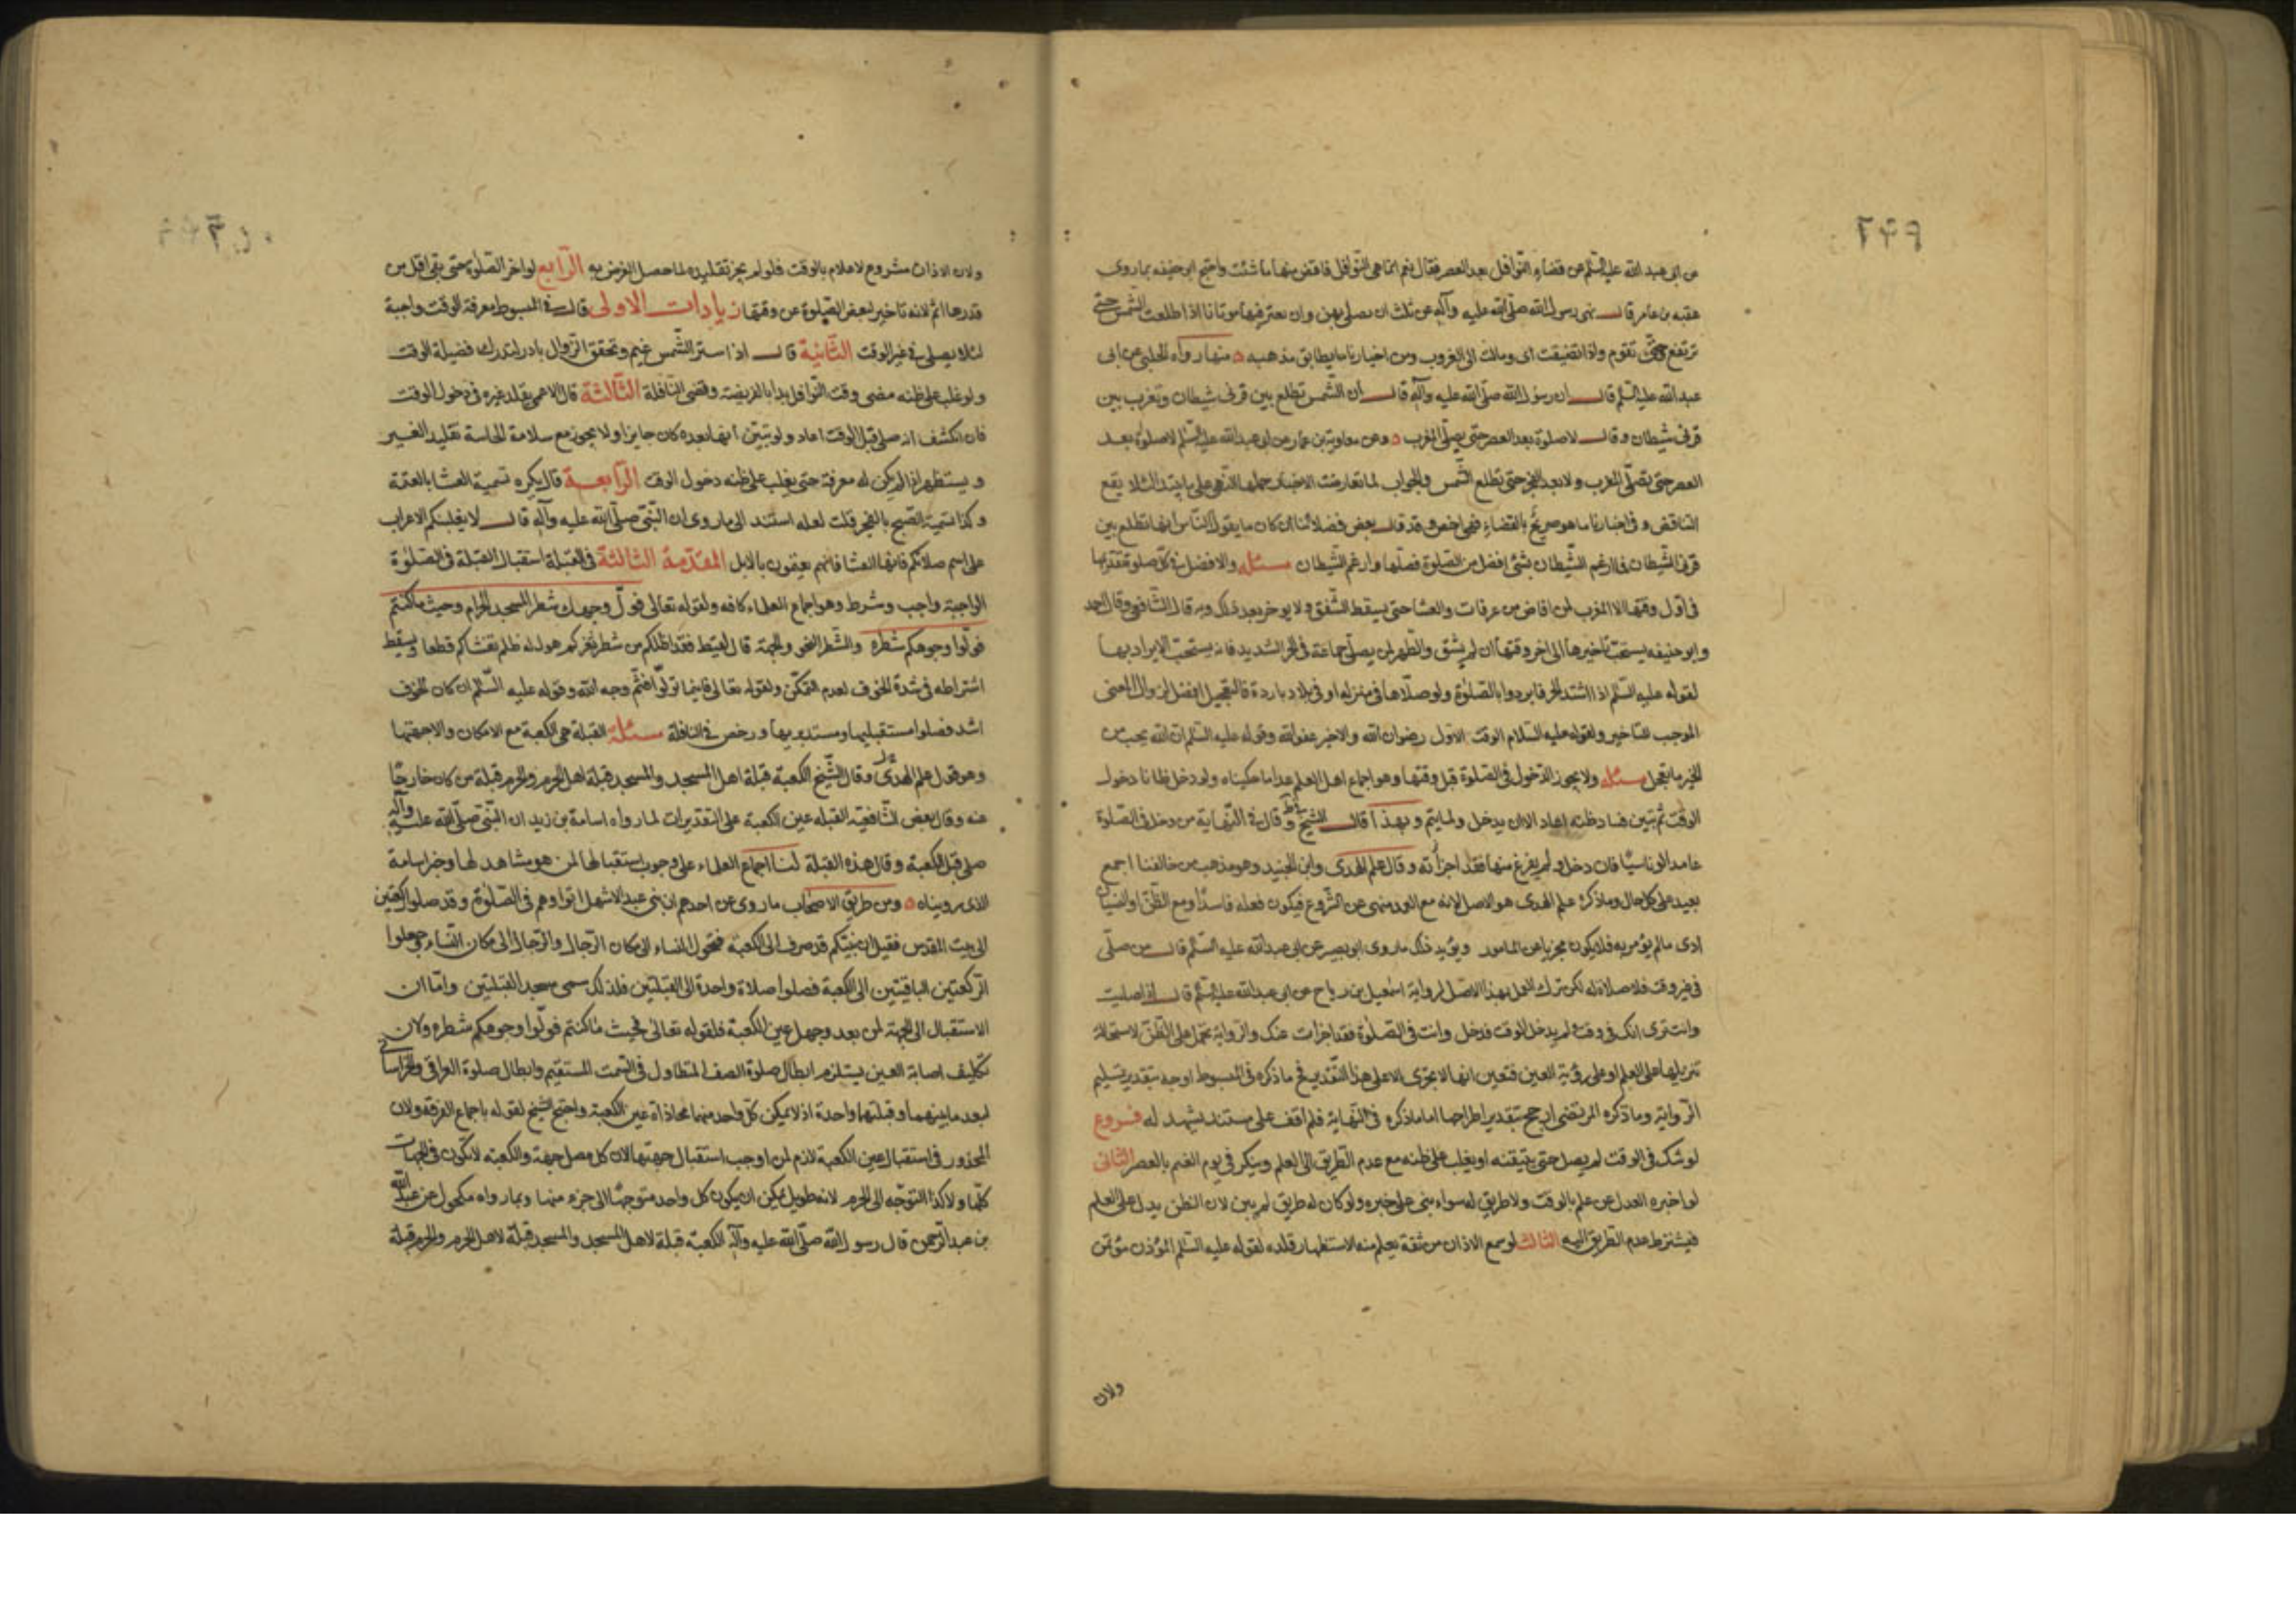 ٢٤٩
عن ابى عبد الله عليه السّلم عن قضاء النّوافل بعد العصر فقال نعم انّما هى النّوافل فاقض منها ما شئت واحتج ابو حنيفه بما روى
عقبه بن عامر قال نهى رسول الله صلّى الله عليه وآله عن ثلث ان نصلى بهن وان نعتبر فيها موتانا اذا طلعت الشّمس حتّى
ترتفع وحتّى تقوم واذا تضيفت اى ومالت الى الغروب ومن اخبارنا ما يطابق مذهبه ٥ منها رواه الحلبى عن ابى
عبد الله عليه السّلم قال ان رسول الله صلّى الله عليه وآله قال ان الشّمس تطلع بين قرنى شيطان وتغرب بين
قرنى شيطان وقال لا صلوة بعد العصر حتى يصلّى المغرب ٥ وعن معاوية بن عمار عن ابى عبد الله عليه السّلم لا صلوة بعد
العصر حتى تصلّى المغرب ولا بعد الفجر حتى تطلع الشّمس والجواب لما تعارضت الاخبار حملنا النّهى على ما يبتدا لئلا يقع
التناقض وفى اخبارنا ما هو صريح بالقضاء فهى اخص وقد قال بعض فضلائنا ان كان ما يقول النّاس انها تطلع بين
قرنى الشّيطان فما ارغم الشّيطان بشئ افضل من الصّلوة فصلّها وارغم الشّيطان مسئله والافضل فى كلّ صلوة تقديمها
فى اوّل وقتها الا المغرب لمن افاض من عرفات والعشا حتى يسقط الشّفق ولا يوخر بعد ذلك وبه قال الشّافعى وقال احمد
وابو حنيفه يستحبّ تاخيرها الى اخر وقتها ان لم يشق والظّهر لمن يصلّى جماعة فى الحر الشديد فانه يستحبّ الابراد بها
لقوله عليه السّلم اذا اشتد الحر فابردوا بالصّلوة ولو صلّاها فى منزله او فى بلاد باردة فالتعجيل افضل لزوال المعنى
الموجب للتاخير ولقوله عليه السّلام الوقت الاوّل رضوان الله والاخير عفو الله وقوله عليه السّلم ان الله يحب من
الخير ما يعجل مسئله ولا يجوز الدّخول فى الصّلوة قبل وقتها وهو اجماع اهل العلم عدا ما حكيناه ولو دخل ظانا دخول
الوقت ثم تبين فساد ظنه اعاد الا ان يدخل ولما يتم وبهذا قال الشّيخ فى ط وقال فى النّهاية من دخل فى الصّلوة
عامدا او ناسيًا فان دخل ولم يفرغ منها فقد اجزأته وقال علم الهدى وابن الجنيد وهو مذهب من خالفنا اجمع
يعيد على كل حال وما ذكره علم الهدى هو الاصل لانه مع العمد منهى عن الشّروع فيكون فعله فاسدًا ومع الظّنّ او النّسيان
ادى ما لم يؤمر به فلا يكون مجزيا عن المامور ويؤيد ذلك ما روى ابو بصير عن ابى عبد الله عليه السّلم قال من صلّى
فى غير وقت فلا صلاة له لكن ترك العمل بهذا الاصل لرواية اسمعيل بن رياح عن ابى عبد الله عليه السّلم قال اذا صليت
وانت ترى انك فى وقت ولم يدخل الوقت فدخل وانت فى الصّلوة فقد اجزات عنك والرّواية تحمل على الظّنّ لاستحالة
تنزيلها على العلم او على رؤية العين فتعين انها لا تجزى الا على هذا التّقدير فح ما ذكره فى المبسوط اوجه بتقدير تسليم
الرّواية وما ذكره المرتضى ارجح بتقدير اطراحها اما ما ذكره فى النّهاية فلم اقف على مستند يشهد له فروع
لو شك فى الوقت لم يصل حتى يتيقنه او يغلب على ظنه مع عدم الطّريق الى العلم ويبكر فى يوم الغيم بالعصر الثانى
لو اخبره العدل عن علم بالوقت ولا طريق له سواه بنى على خبره ولو كان له طريق لم يبن لان الظن يدل على العلم
فيشترط عدم الطّريق اليه الثالث لو سمع الاذان من ثقة يعلم منه الاستظهار قلده لقوله عليه السّلم المؤذن مؤتمن
ولان
ولان الاذان مشروع لاعلام بالوقت فلو لم يجز تقليده لما حصل الغرض به الرّابع لو اخر الصّلوة حتى بقى اقل من
قدرها اثم لانه تاخير لبعض الصّلوة عن وقتها زيادات الاولى قال فى المبسوط معرفة الوقت واجبة
لئلا يصلى فى غير الوقت الثّانية قال اذا ستر الشّمس غيم وتحقق الزّوال بادر ليدرك فضيلة الوقت
ولو غلب على ظنه مضى وقت النّوافل بدا بالفريضة وقضى النّافلة الثّالثة قال الاعمى يقلد غيره فى دخول الوقت
فان انكشف انه صلى قبل الوقت اعاد ولو تبيّن انها بعده كان جايزا ولا يجوز مع سلامة الحاسة تقليد الغير
ويستظهر اذا لم يكن له معرفة حتى يغلب على ظنه دخول الوقت الرّابعة قال يكره تسمية العشا بالعتمة
وكذا تسمية الصّبح بالفجر قلت لعله استند الى ما روى ان النّبىّ صلّى الله عليه وآله قال لا يغلبنكم الاعراب
على اسم صلاتكم فانها العشا فانهم يعتمون بالابل المقدّمة الثالثة فى القبلة استقبال القبلة فى الصّلوة
الواجبة واجب وشرط وهو اجماع العلماء كافه ولقوله تعالى فولّ وجهك شطر المسجد الحرام وحيث ما كنتم
فولّوا وجوهكم شطره والشّطر النحو والجهة قال لقيط فقد اظلكم من شطر ثغركم هول له ظلم تغشاكم قطعا ويسقط
اشتراطه فى شدة الخوف لعدم التمكّن ولقوله تعالى فاينما تولّوا فثمّ وجه الله وقوله عليه السّلم ان كان الخوف
اشد فصلوا مستقبليها ومستدبريها ورخص فى النافلة مسئلة القبلة هى الكعبة مع الامكان والا جهتها
وهو قول علم الهدى وقال الشّيخ الكعبة قبلة اهل المسجد والمسجد قبلة اهل الحرم والحرم قبلة من كان خارجًا
عنه وقال بعض الشّافعية القبله عين الكعبة على التقديرات لما رواه اسامة بن زيد ان النّبىّ صلّى الله عليه وآله
صلى قبل الكعبة وقال هذه القبلة لنا اجماع العلماء على وجوب استقبالها لمن هو مشاهد لها وخبر اسامة
الذى رويناه ٥ ومن طريق الاصحاب ما روى عن احدهم ان بنى عبد الاشهل اتوا وهم فى الصّلوة وقد صلوا ركعتين
الى بيت المقدس فقيل ان نبيّكم قد صرف الى الكعبة فتحول النساء الى مكان الرّجال والرّجال الى مكان النّساء وجعلوا
الرّكعتين الباقيتين الى الكعبة فصلوا صلاة واحدة الى القبلتين فلذلك سمى مسجد القبلتين وامّا ان
الاستقبال الى الجهة لمن بعد وجهل عين الكعبة فلقوله تعالى فحيث ما كنتم فولّوا وجوهكم شطره ولان
تكليف اصابة العين يستلزم ابطال صلوة الصف المتطاول فى السّمت المستقيم وابطال صلوة العراقى والخراسانى
لبعد ما بينهما وقبلتهما واحدة اذ لا يمكن كلّ واحد منهما محاذاة عين الكعبة واحتج الشيخ لقوله باجماع الفرقة ولان
المحذور فى استقبال عين الكعبة لازم لمن اوجب استقبال جهتها لان كل مصل جهة والكعبة لا تكون فى الجهات
كلّها ولا كذا التوجّه الى الحرم لانه طويل يمكن ان يكون كل واحد متوجهًا الى جزء منها وبما رواه مكحول عن عبد الله
بن عبد الرّحمن قال رسول الله صلّى الله عليه وآله الكعبة قبلة لاهل المسجد والمسجد قبلة لاهل الحرم والحرم قبلة